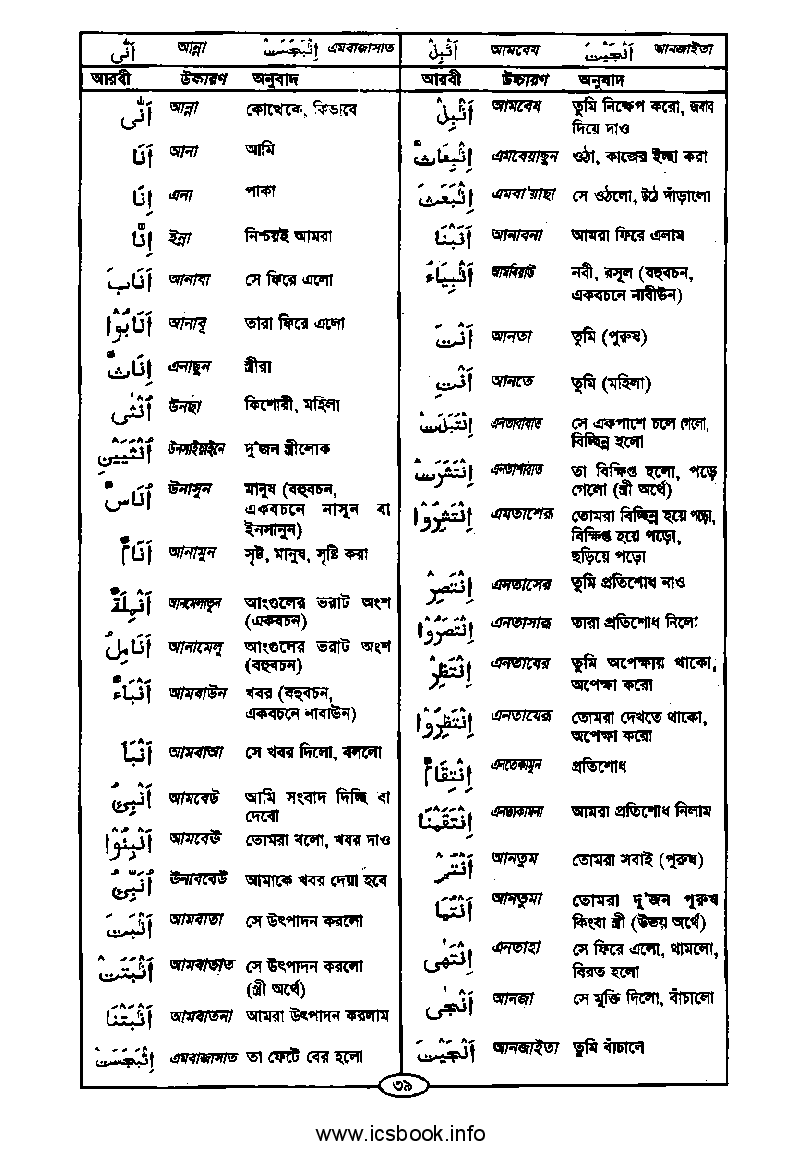 اَنّٰى আন্না اِنْۢبَجَسَتْ এমবাজাসাত
আরবী উচ্চারণ অনুবাদ
اَنّٰى আন্না কোত্থেকে, কিভাবে
اَنَا আনা আমি
اِنَا এনা পাকা
اِنَّا ইন্না নিশ্চয়ই আমরা
اَنَابَ আনাবা সে ফিরে এলো
اَنَابُوْا আনাবূ তারা ফিরে এলো
اِنَاثٌ এনাছুন স্ত্রীরা
اُنْثٰى উনছা কিশোরী, মহিলা
اُنْثَيَيْنِ উনসাইয়াইনে দু'জন স্ত্রীলোক
اُنَاسٌ উনাসুন মানুষ (বহুবচন,
একবচনে নাসুন বা
ইনসানুন)
اَنَامٌ আনামুন সৃষ্ট, মানুষ, সৃষ্টি করা
اَنْمِلَةٌ আনমেলাতুন আংগুলের ভরাট অংশ
(একবচন)
اَنَامِلُ আনামেলু আংগুলের ভরাট অংশ
(বহুবচন)
اَنْۢبَاءٌ আমবাউন খবর (বহুবচন,
একবচনে নাবাউন)
اَنْۢبَأَ আমবাআ সে খবর দিলো, বললো
اُنَبِّئُ আমবেউ আমি সংবাদ দিচ্ছি বা
দেবো
اَنْۢبِئُوْا আমবেউ তোমরা বলো, খবর দাও
اُنَبِّئُ উনাববেউ আমাকে খবর দেয়া হবে
اَنْۢبَتَ আমবাতা সে উৎপাদন করলো
اَنْۢبَتَتْ আমবাতাত সে উৎপাদন করলো
(স্ত্রী অর্থে)
اَنْۢبَتْنَا আমবাতনা আমরা উৎপাদন করলাম
اِنْۢبَجَسَتْ এমবাজাসাত তা ফেটে বের হলো
اَنْۢبِذْ আমবেয اَنْجَيْتَ আনজাইতা
আরবী উচ্চারণ অনুবাদ
اَنْۢبِذْ আমবেয তুমি নিক্ষেপ করো, জবাব
দিয়ে দাও
اِنْۢبِعَاثٌ এমবেয়াছুন ওঠা, কাজের ইচ্ছা করা
اِنْۢبَعَثَ এমবা'য়াছা সে ওঠলো, উঠে দাঁড়ালো
اَنَبْنَا আনাবনা আমরা ফিরে এলাম
اَنْۢبِيَاءُ আমবিয়াউ নবী, রসূল (বহুবচন,
একবচনে নাবীউন)
اَنْتَ আনতা তুমি (পুরুষ)
اَنْتِ আনতে তুমি (মহিলা)
اِنْتَبَذَتْ এনতাবাযাত সে একপাশে চলে গেলো,
বিচ্ছিন্ন হলো
اِنْتَثَرَتْ এনতাশারাত তা বিক্ষিপ্ত হলো, পড়ে
গেলো (স্ত্রী অর্থে)
اِنْتَشِرُوْا এমতাশেরু তোমরা বিচ্ছিন্ন হয়ে পড়ো,
বিক্ষিপ্ত হয়ে পড়ো,
ছড়িয়ে পড়ো
اِنْتَصِرْ এনতাসের তুমি প্রতিশোধ নাও
اِنْتَصَرُوْا এনতাসারূ তারা প্রতিশোধ নিলো
اِنْتَظِرْ এনতাযের তুমি অপেক্ষায় থাকো,
অপেক্ষা করো
اِنْتَظِرُوْا এনতাযেরূ তোমরা দেখতে থাকো,
অপেক্ষা করো
اِنْتِقَامٌ এনতেকামুন প্রতিশোধ
اِنْتَقَمْنَا এনতাকামনা আমরা প্রতিশোধ নিলাম
اَنْتُمْ আনতুম তোমরা সবাই (পুরুষ)
اَنْتُمَا আনতুমা তোমরা দু'জন পুরুষ
কিংবা স্ত্রী (উভয় অর্থে)
اِنْتَهٰى এনতাহা সে ফিরে এলো, থামলো,
বিরত হলো
اَنْجٰى আনজা সে মুক্তি দিলো, বাঁচালো
اَنْجَيْتَ আনজাইতা তুমি বাঁচালে
৩৯
www.icsbook.info